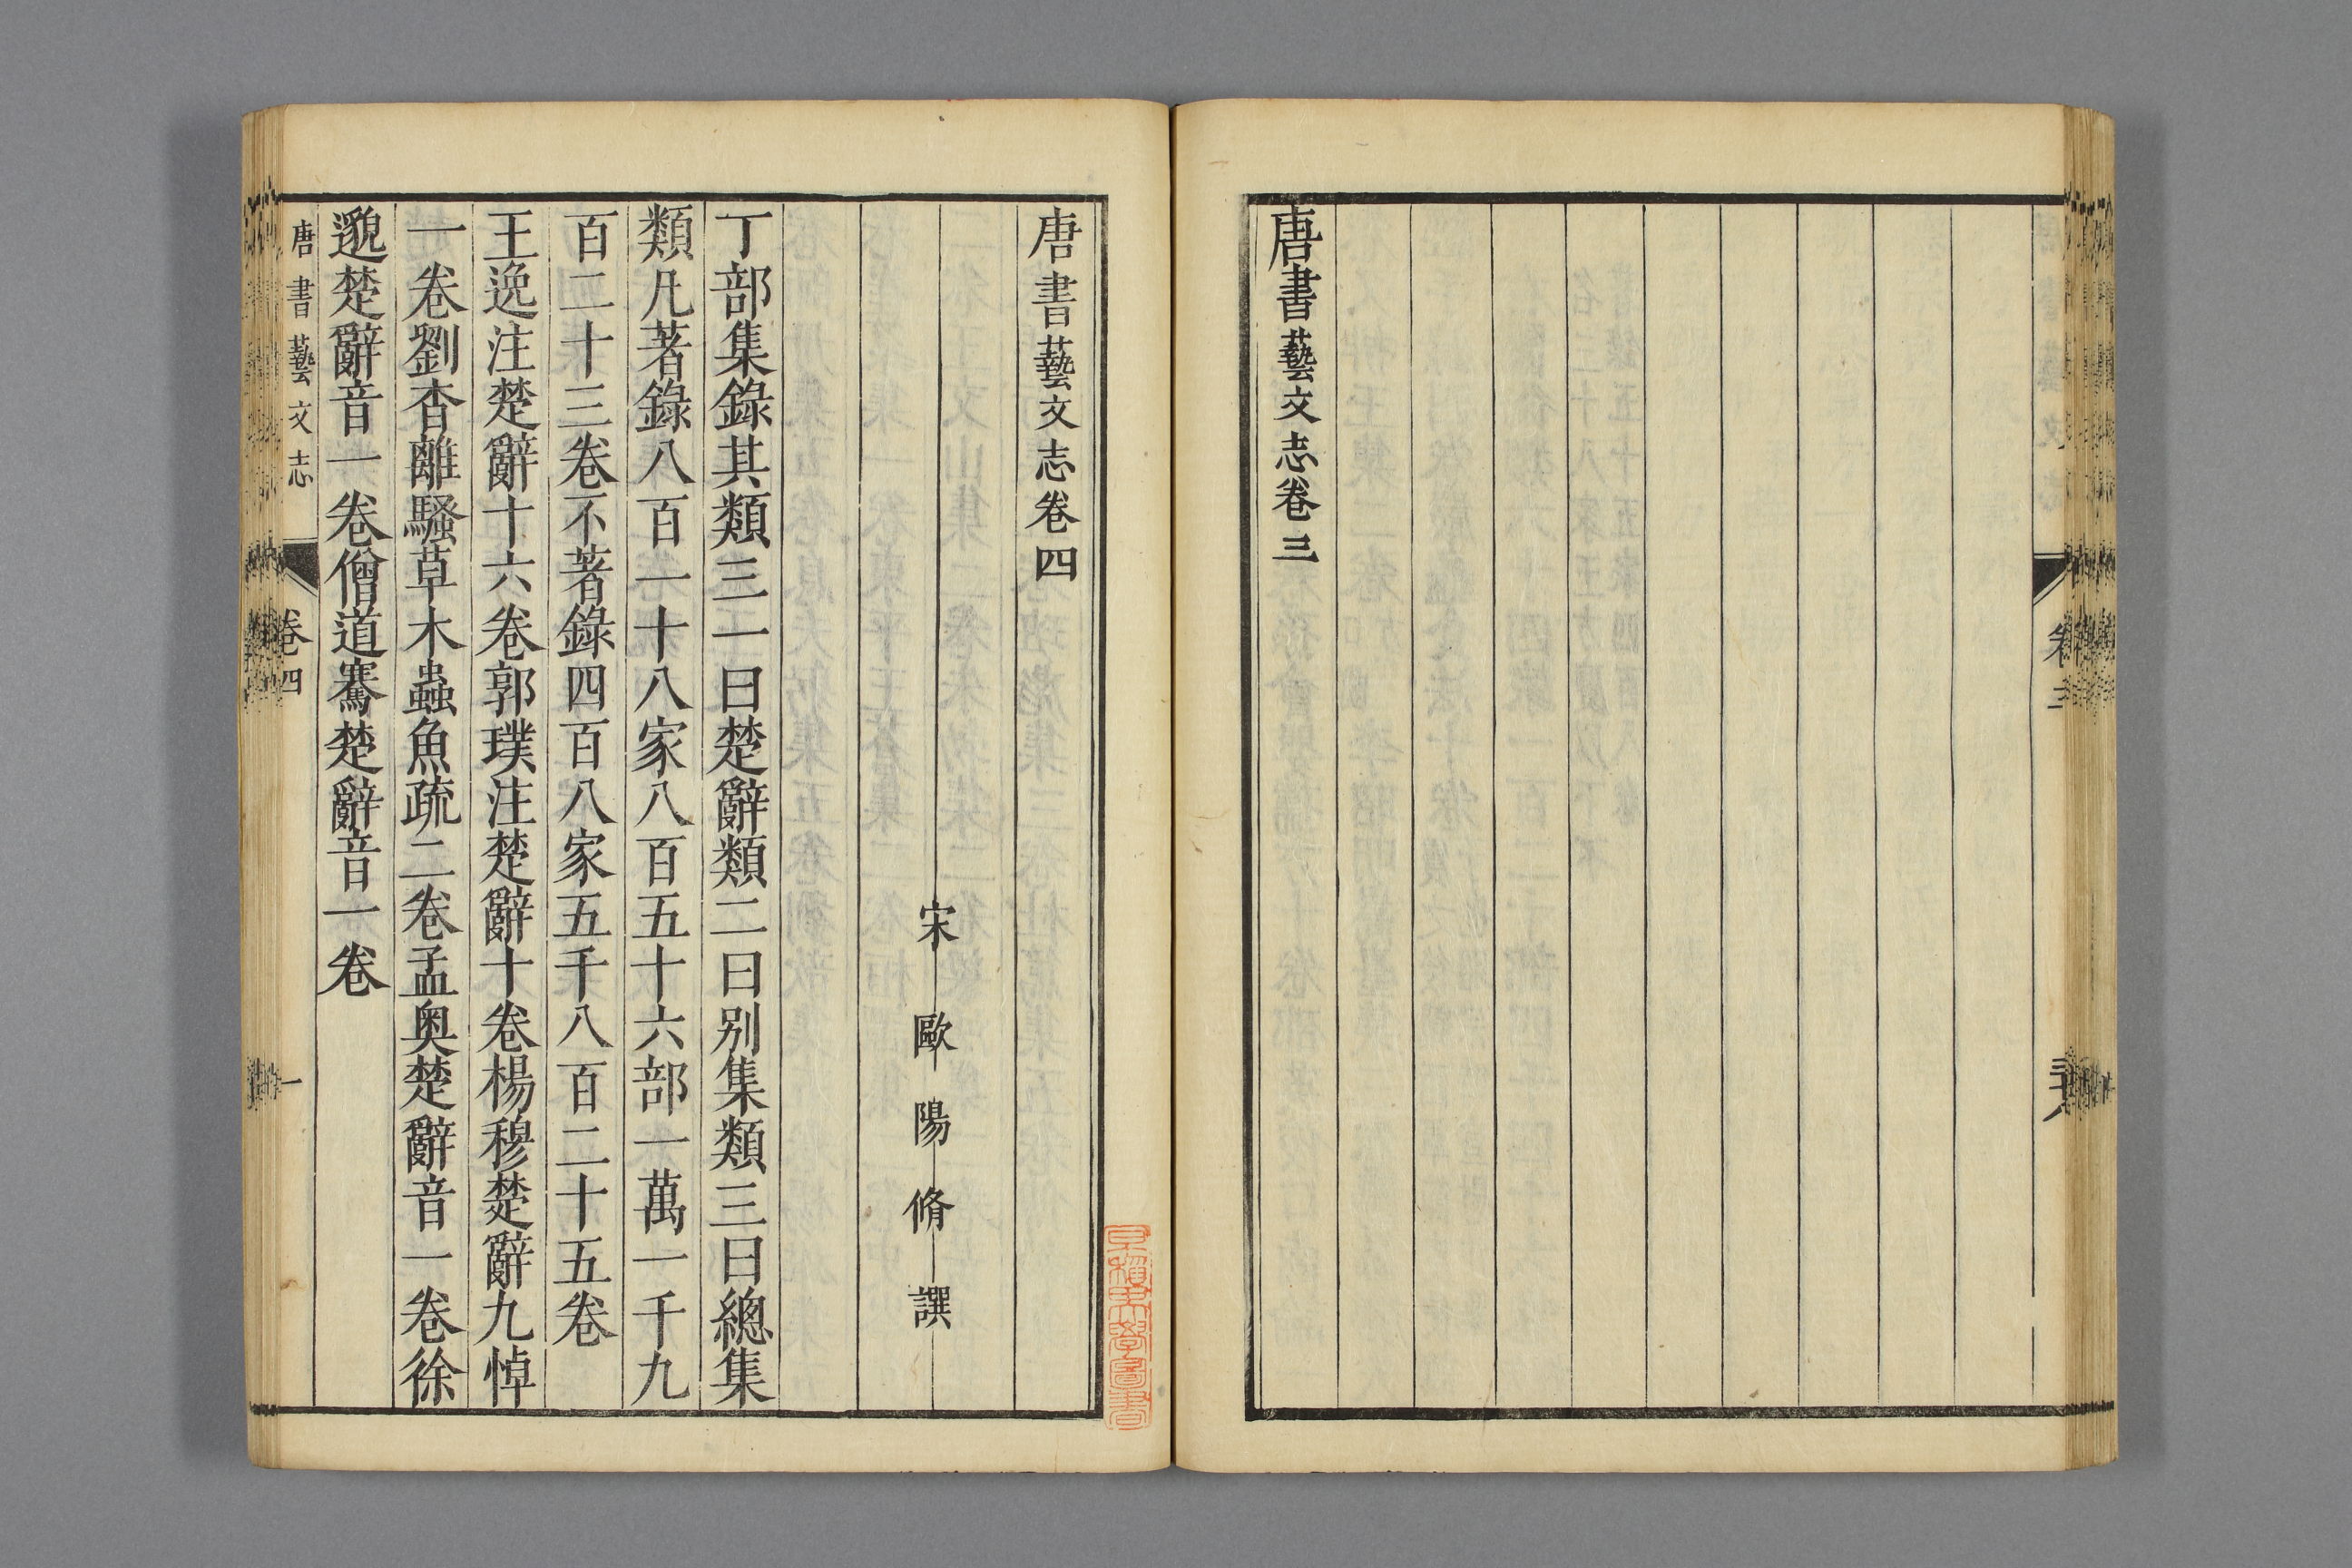 唐書藝文志卷三
唐書藝文志卷四
宋歐陽脩譔
丁部集錄其類三一曰楚辭類二曰别集類三曰總集
類凡著錄八百一十八家八百五十六部一萬一千九
百二十三卷不著錄四百八家五千八百二十五卷
王逸注楚辭十六卷郭璞注楚辭十卷楊穆楚辭九悼
一卷劉杳離騷草木蟲魚疏二卷孟奥楚辭音一卷徐
邈楚辭音一卷僧道騫楚辭音一卷
唐書藝文志 卷四 一
早稲田大學圖書